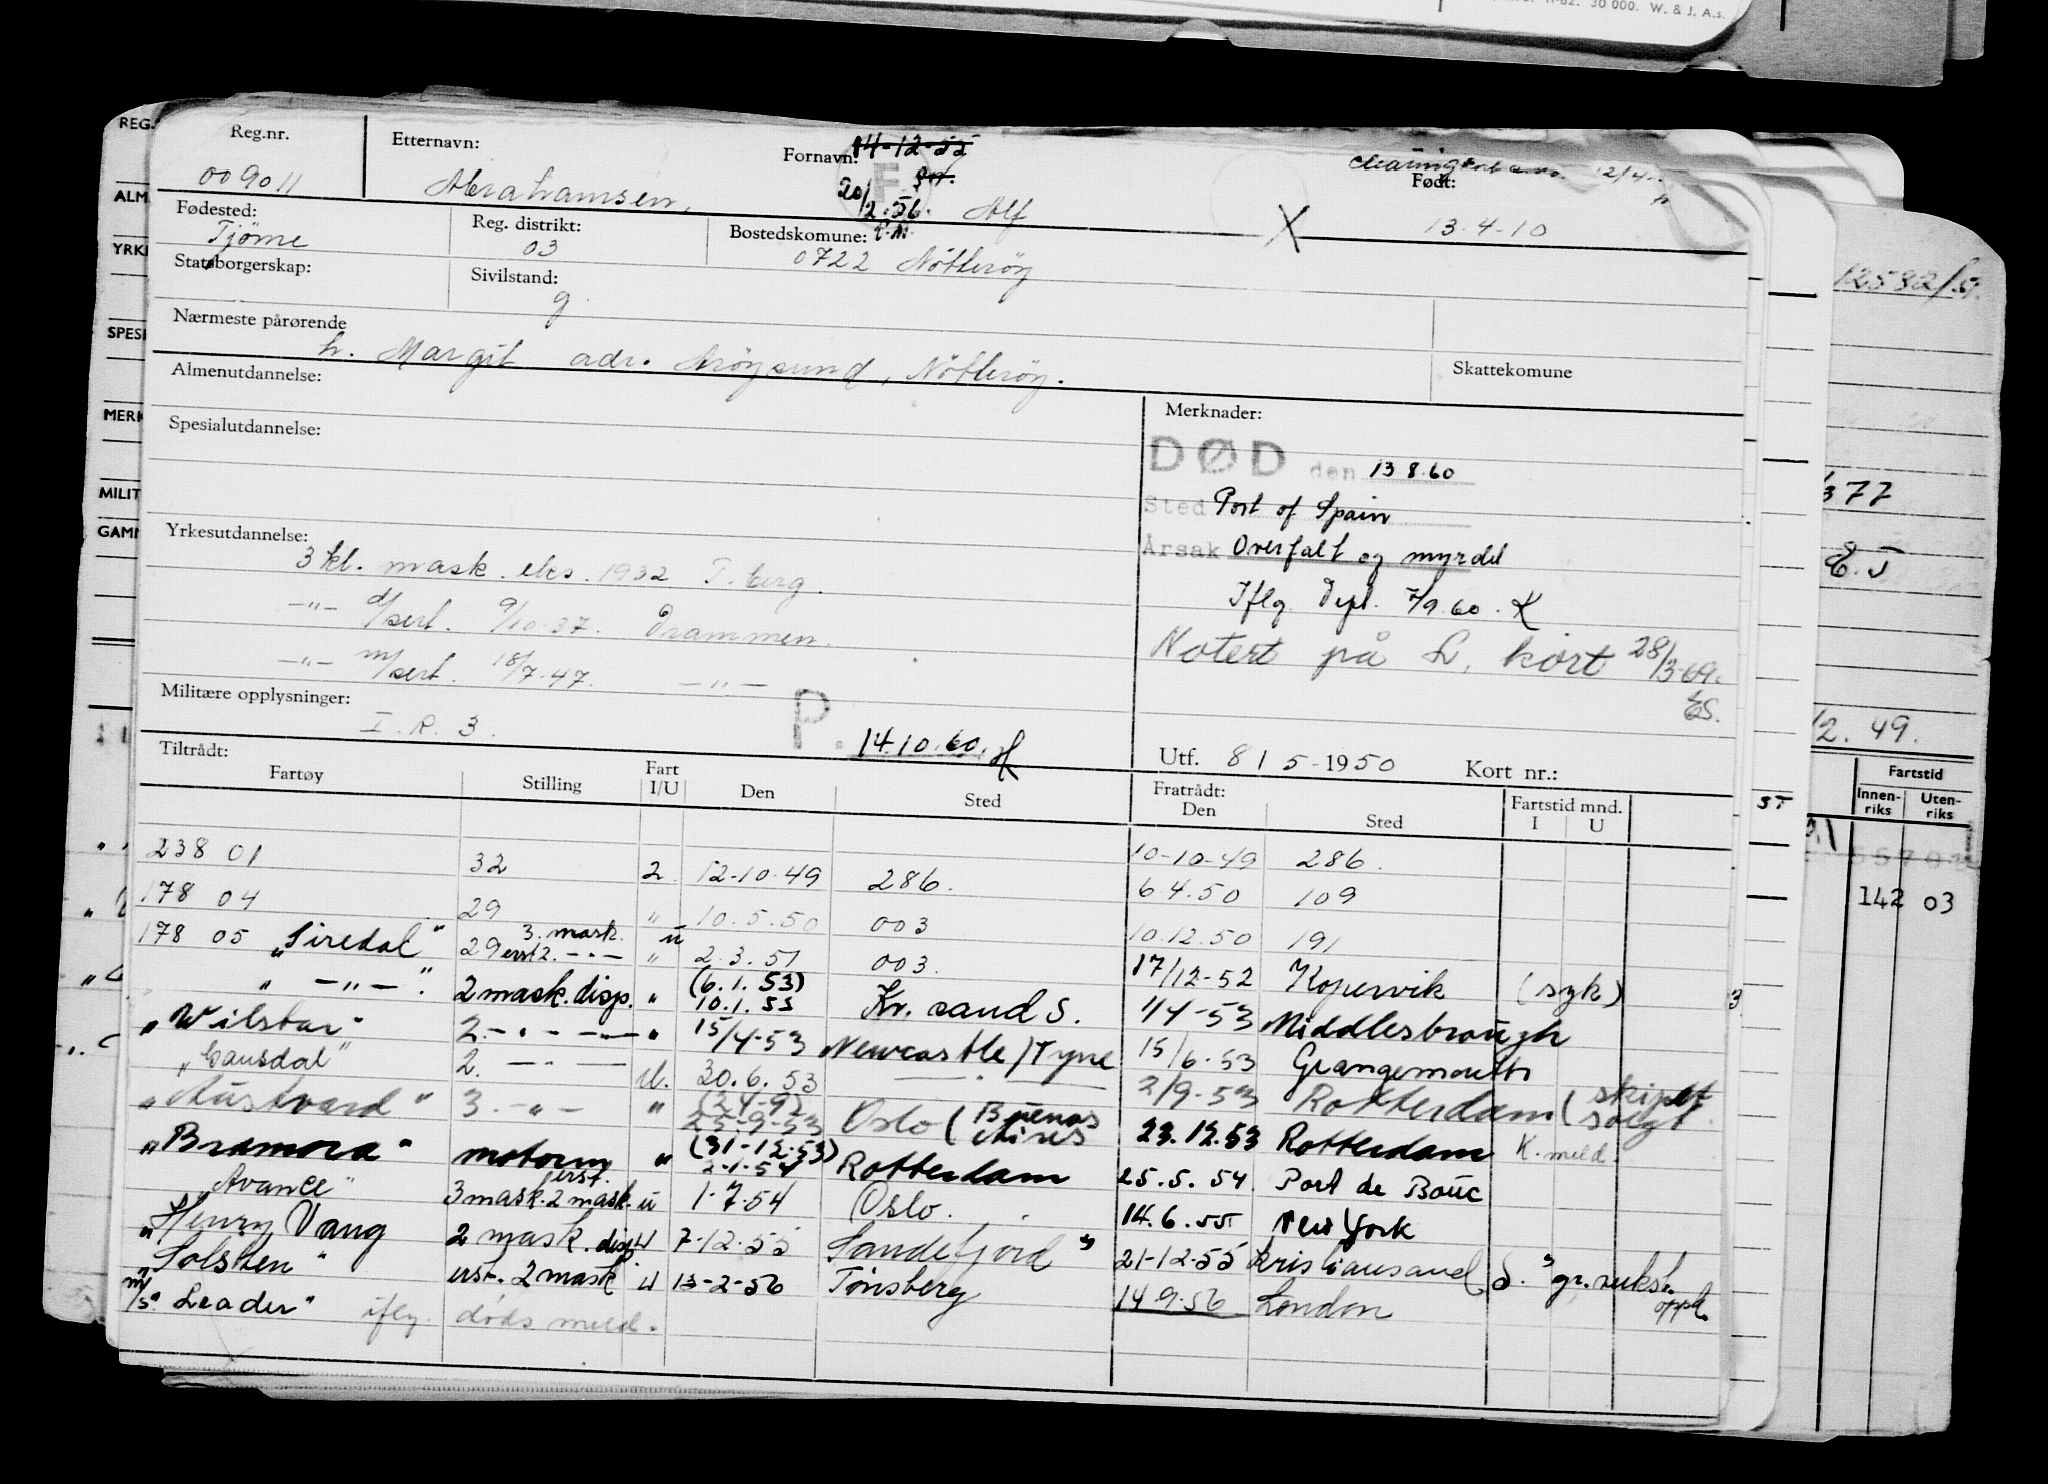 11-62. 30 000. W. & J. A.s.
REG.
ALM.
YRK
SPES
MERK
MILIT
GAMM
Reg.nr.
009011
Etternavn:
Abrahamsen,
Fornavn:
14-12-55
20/2.56.
Alf
Født:
13.4.10
X
Fødested:
Tjøme
Reg. distrikt:
03
Bostedskomune:
0722 Nøtterøy
Statsborgerskap:
Sivilstand:
g.
Nærmeste pårørende
h. Margit adr. Årøysund, Nøtterøy.
Skattekomune
Almenutdannelse:
Spesialutdannelse:
Yrkesutdannelse:
3 kl. mask. eks. 1932 T.berg.
-"- d/sert. 9/10-37. Drammen.
-"- m/sert. 18/7-47. -"-
Merknader:
DØD den 13 8.60
Sted Port of Spain
Årsak Overfalt og myrdet
Iflg. Dept. 7/9.60. K
Notert på L. kort 28/3-69.
ES.
Militære opplysninger:
I. R. 3.
P. 14.10.60.
Utf. 8 / 5-1950
Kort nr.:
Tiltrådt:
Fartøy Stilling Fart I/U Den Sted
Fratrådt:
Den Sted
Fartstid mnd.
I U
238 01 32 2 12-10-49 286. 10-10-49 286.
178 04 29 " 10.5.50 003 6 4.50 109
178 05 "Siredal" 29 3. mask. erst 2. -"- " u 2.3.51 003. 10.12.50 191
" -"- " 2 mask. disp. " (6.1.53) 10.1.53 Kr. sand S. 17/12-52 Kopervik (syk)
"Wilstar" 2. -"- " 15/4-53 Newcastle/Tyne 4/4-53 Middlesbrough
"Gausdal" 2. -"- U. 30.6.53 -"- 15/6-53 Grangemouth
"Austvard" 3. -"- " (24-9) 25-9-53 Oslo (Buenos Aires 2/9-53 Rotterdam (skipet solgt.
"Bramora" motorm " (31-12-53) 2-1-54 Rotterdam 23.12.53 Rotterdam K. meld.
"Avance" 3 mask. erst. 2 mask. u 1.7.54 Oslo. 25.5.54 Port de Bouc
"Henry Vang 2 mask. disp U 7-12-55 Sandefjord" 14.6.55 New York
"Solsten" erst. 2 mask U 13-2-56 Tønsberg 21-12-55 Kristiansand S. " gr. sukst. opph.
m/s "Leader" iflg. døds meld. 14 9.56 London
12582/
377
E.J
/2.49.
Fartstid
Innenriks
Utenriks
142 03